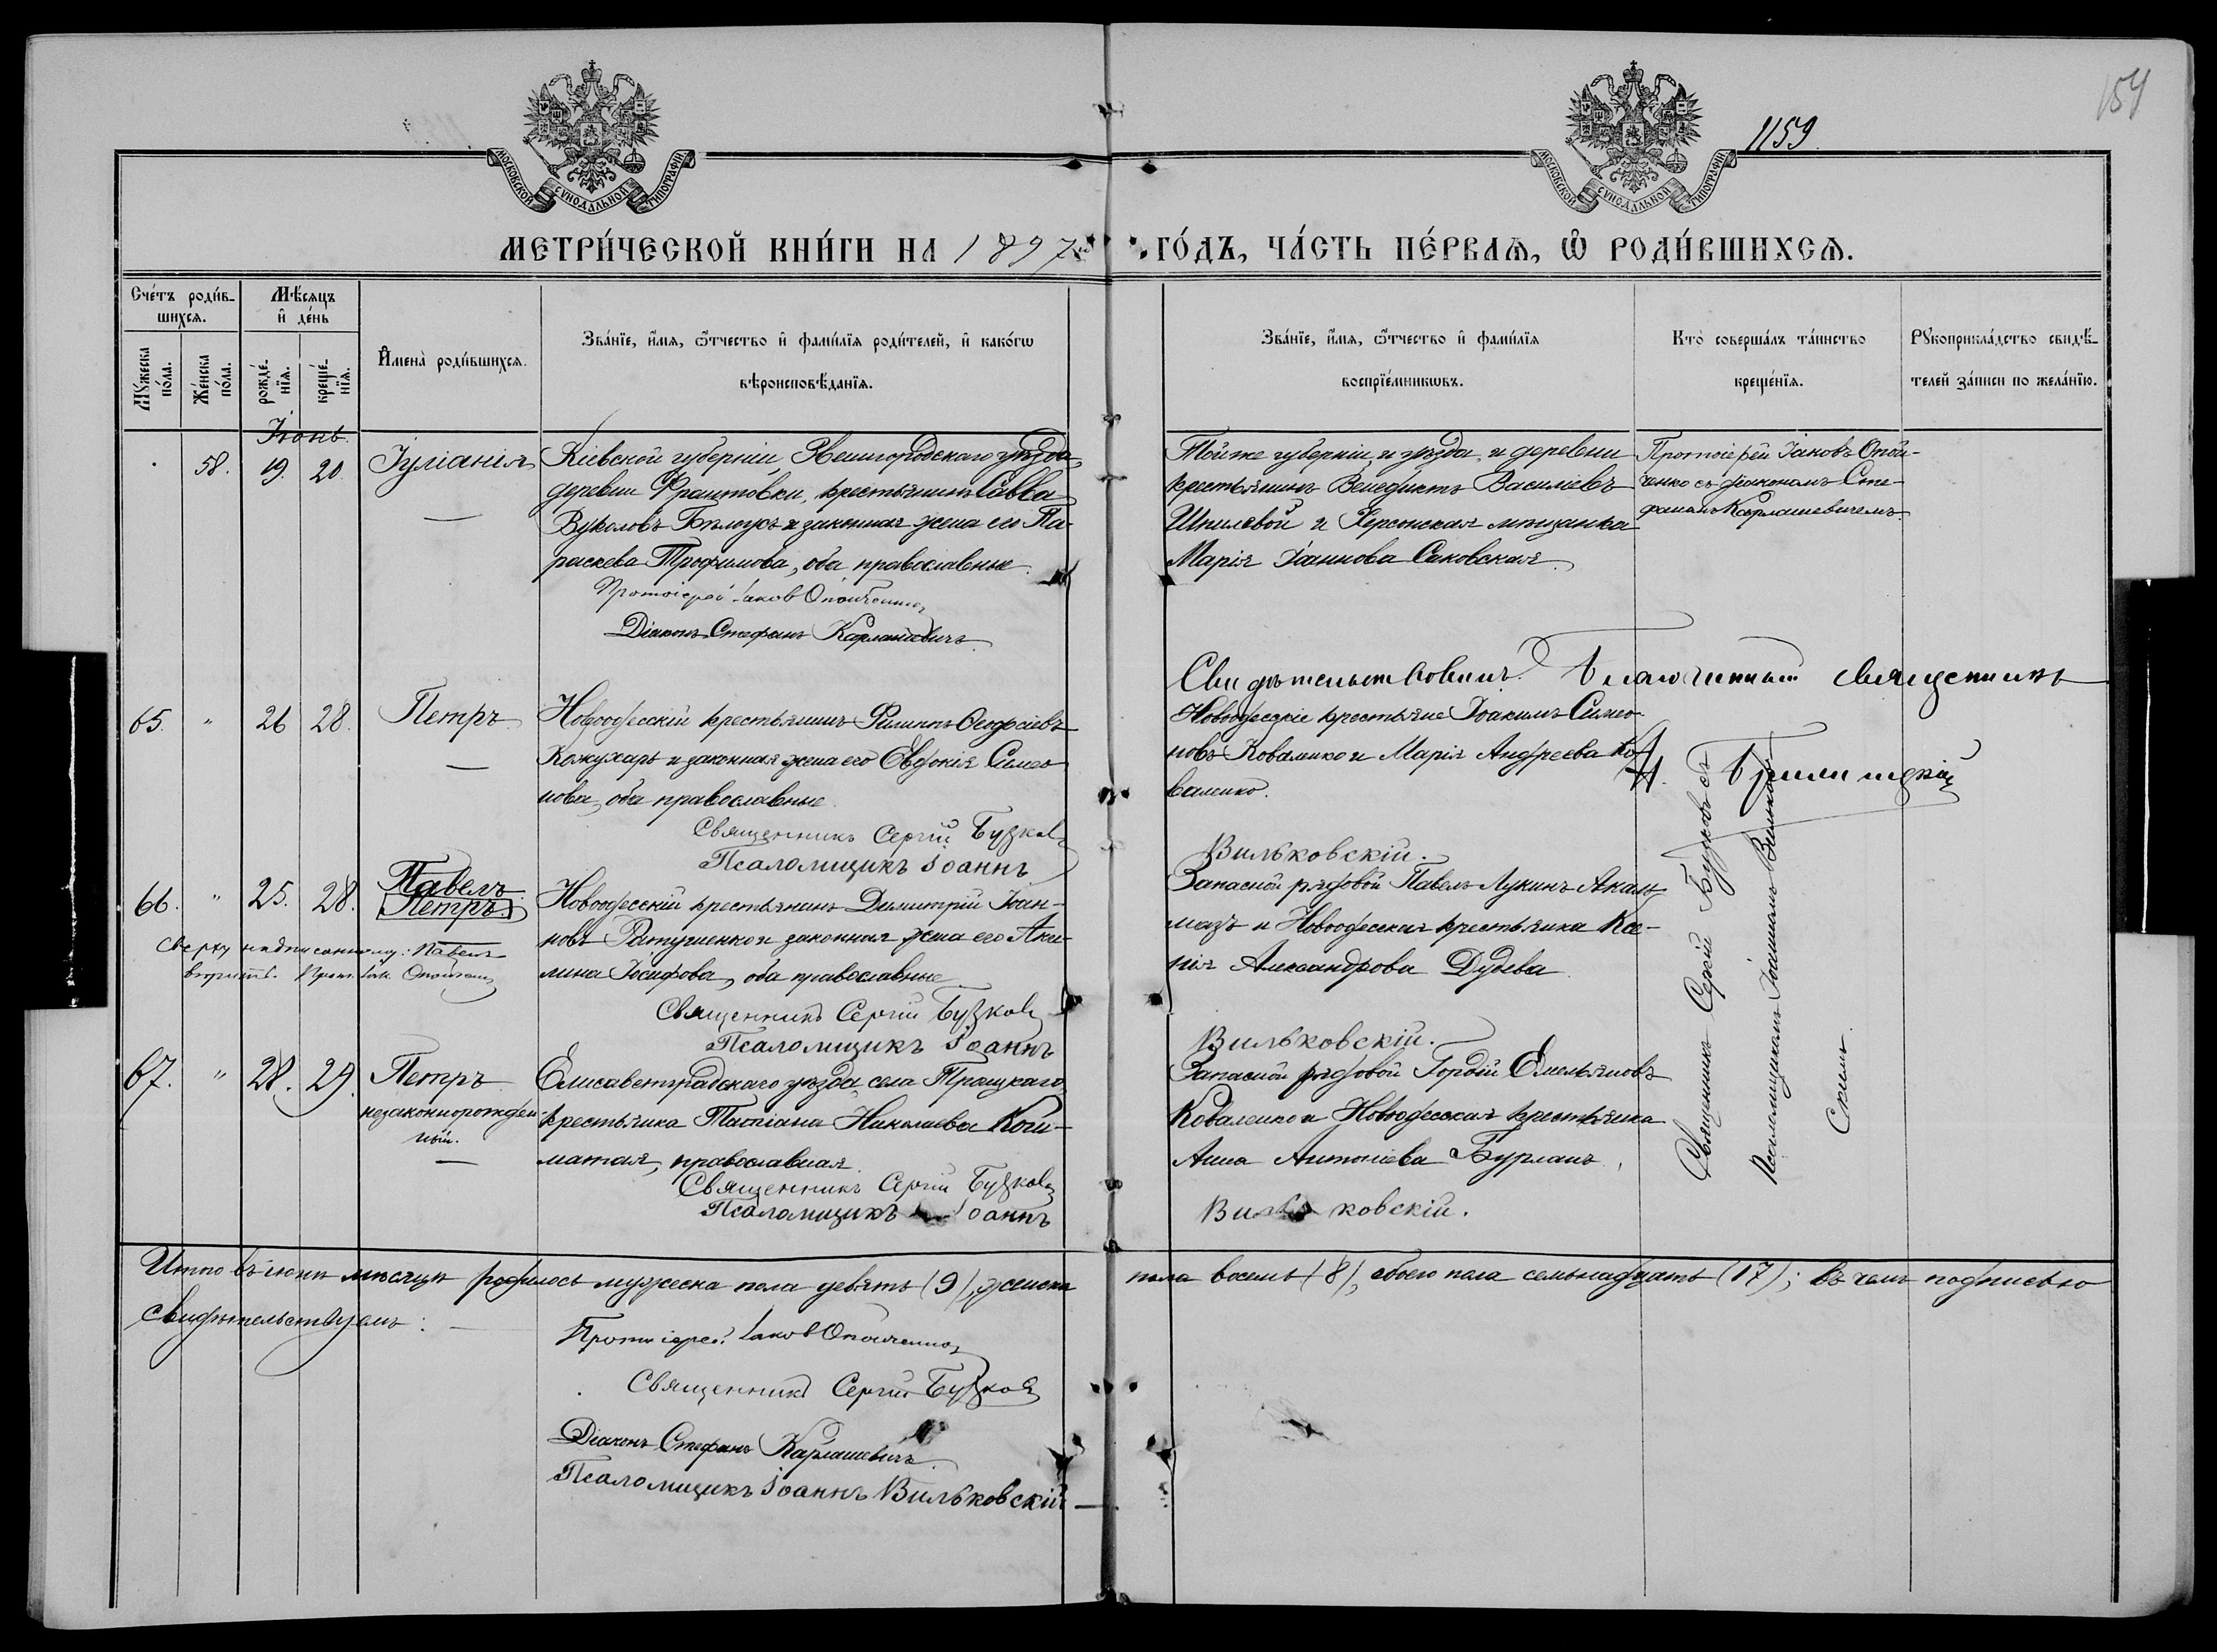 154
1159.
МОСКОВСКОЙ СѴНОДАЛЬНОЙ ТИПОГРАФІИ
МОСКОВСКОЙ СѴНОДАЛЬНОЙ ТИПОГРАФІИ
МЕТРИ́ЧЕСКОЙ КНИ́ГИ НА 1897 ГО́ДЪ, ЧА́СТЬ ПЕ́РВАѦ, Ѡ РОДИ́ВШИХСѦ.
Сче́тъ роди́в-
шихсѧ.
Мѣ́сѧцъ
и де́нь
Мꙋжеска
по́ла.
Же́нска
по́ла.
рожде́-
нїѧ.
креще́-
нїѧ.
Имена̀ роди́вшихсѧ.
Зва́нїе, и́мѧ, ѻ́тчество и фами́лїѧ роди́телей, и како́гѡ
вѣроисповѣ́данїѧ.
Зва́нїе, и́мѧ, ѻ́тчество и фами́лїѧ
воспрїе́мникѡвъ.
Кто̀ соверша́лъ та́инство
креще́нїѧ.
Рꙋкоприкла́дство свидѣ́-
телей за́писи по жела́нїю.
Іюнь.
58. 19. 20. Іуліанія
Кіевской губерніи, Звенигородскаго уѣзда,
деревни Франтовки, крестьянинъ Савва
Вуколовъ Бѣлоусъ и законная жена его Па-
раскева Трофимова, оба православные.
Протоіерей Іаков Опойченко
Діаконъ Стефанъ Карлашевичъ.
Той же губерніи и уѣзда и деревни
крестьянинъ Венедиктъ Василіевъ
Шпилевой и Херсонская мѣщанка
Марія Іоаннова Саковская.
Протоіерей Іаковъ Опой-
ченко съ діакономъ Сте-
фаномъ Карлашевичемъ.
Свидѣтельствовалъ: Благочинный священникъ
65. " 26 28. Петръ
Новоодесскій крестьянинъ Филиппъ Ѳеодосіевъ
Кожухарь и законная жена его Евдокія Симео-
нова, оба православные.
Священникъ Сергій Бузков
Псаломщикъ Іоаннъ
Новоодесскіе крестьяне Іоакимъ Симео-
новъ Коваленко и Марія Андреева Ко-
валенко.
Вильковскій.
66. " 25. 28. Павелъ
Петръ.
Сверху надписанному: Павелъ
вѣрить. Прот. Іак. Опойченко
Новоодесскій крестьянинъ Димитрій Іоан-
новъ Ратушенко и законная жена его Аки-
лина Іосифова, оба православные.
Священникъ Сергій Бузков
Псаломщикъ Іоаннъ
Запасной рядовой Павелъ Лукинъ
и Новоодесская крестьянка Ксе-
нія Александрова Дудева.
Вильковскій.
67. " 28. 29. Петръ
незаконнорожден-
ный.
Елисаветградскаго уѣзда, села Троицкаго
крестьянка Татіана Николаева
православная.
Священникъ Сергій Бузков
Псаломщикъ Іоаннъ
Запасной рядовой Гордій Емельяновъ
Коваленко и Новоодесская крестьянка
Анна Антоніева Бурлака.
Вильковскій.
Священникъ Сергій Бузковъ съ
Псаломщикомъ Іоанномъ Вильков-
скимъ.
Итого въ іюнѣ мѣсяцѣ родилось мужеска пола девять (9), женска пола восемь (8), обоего пола семьнадцать (17); въ чемъ подписью
свидѣтельствуемъ:
Протоіерей Іаков Опойченко
Священникъ Сергій Бузков
Діаконъ Стефанъ Карлашевичъ.
Псаломщикъ Іоаннъ Вильковскій